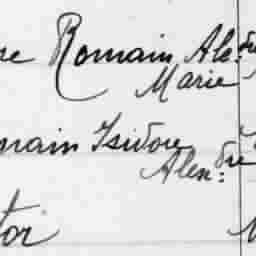 re Romain Ale.dre
Marie
main Isidore
Alex.dre
tor